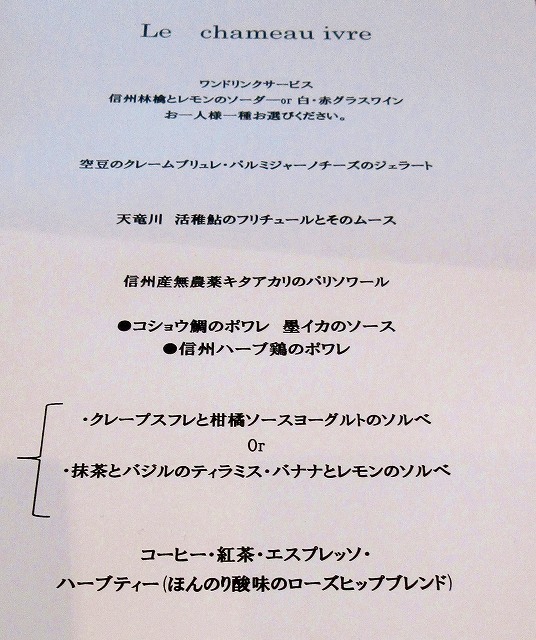 Le chameau ivre
ワンドリンクサービス
信州林檎とレモンのソーダ―or 白・赤グラスワイン
お一人様一種お選びください。
空豆のクレームブリュレ・パルミジャーノチーズのジェラート
天竜川 活稚鮎のフリチュールとそのムース
信州産無農薬キタアカリのパリソワール
●コショウ鯛のポワレ 墨イカのソース
●信州ハーブ鶏のポワレ
・クレープスフレと柑橘ソースヨーグルトのソルベ
Or
・抹茶とバジルのティラミス・バナナとレモンのソルベ
コーヒー・紅茶・エスプレッソ・
ハーブティー(ほんのり酸味のローズヒップブレンド)